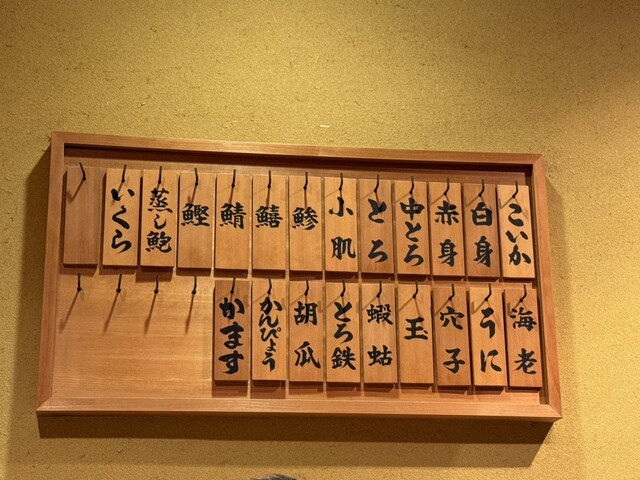 こいか
白身
赤身
中とろ
とろ
小肌
鯵
鱚
鯖
鰹
蒸し鮑
いくら
海老
うに
穴子
玉
蝦蛄
とろ鉄
胡瓜
かんぴょう
かます